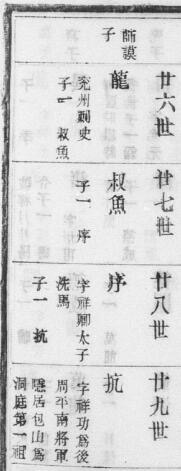 師謨
子
廿六世
龍
兖州刺史
子一 叔魚
廿七世
叔魚
子一 序
廿八世
序
字祥卿太子
洗馬
子一 抗
廿九世
抗
字祥功為後
周平南將軍
隱居包山為
洞庭第一祖